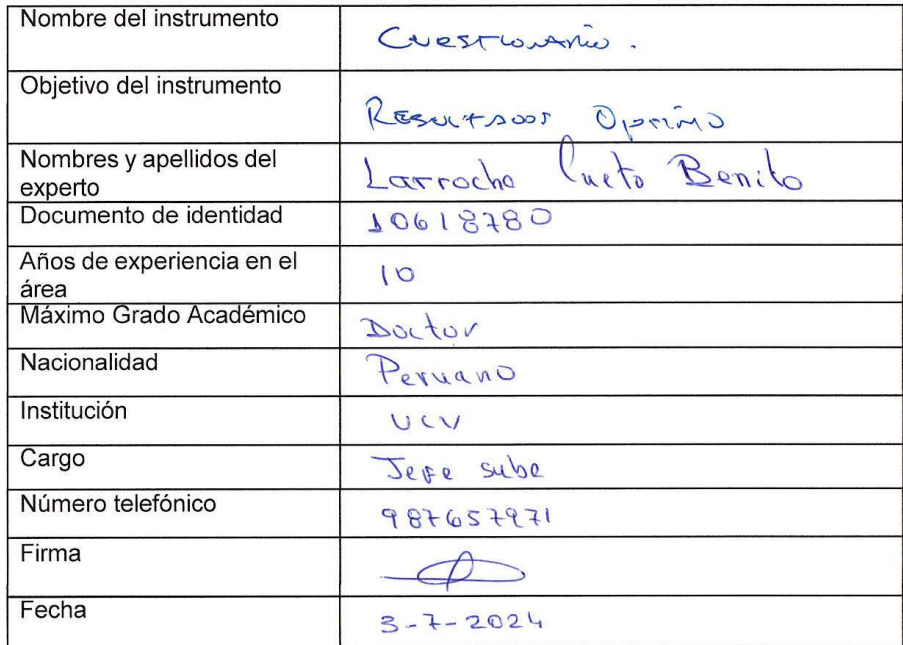 Nombre del instrumento
Cuestionario.
Objetivo del instrumento
Resultados Optimo
Nombres y apellidos del
experto
Larrocha Cueto Benito
Documento de identidad
10618780
Años de experiencia en el
área
10
Máximo Grado Académico
Doctor
Nacionalidad
Peruano
Institución
UCV
Cargo
Jefe sube
Número telefónico
987657971
Firma
Fecha
3-7-2024